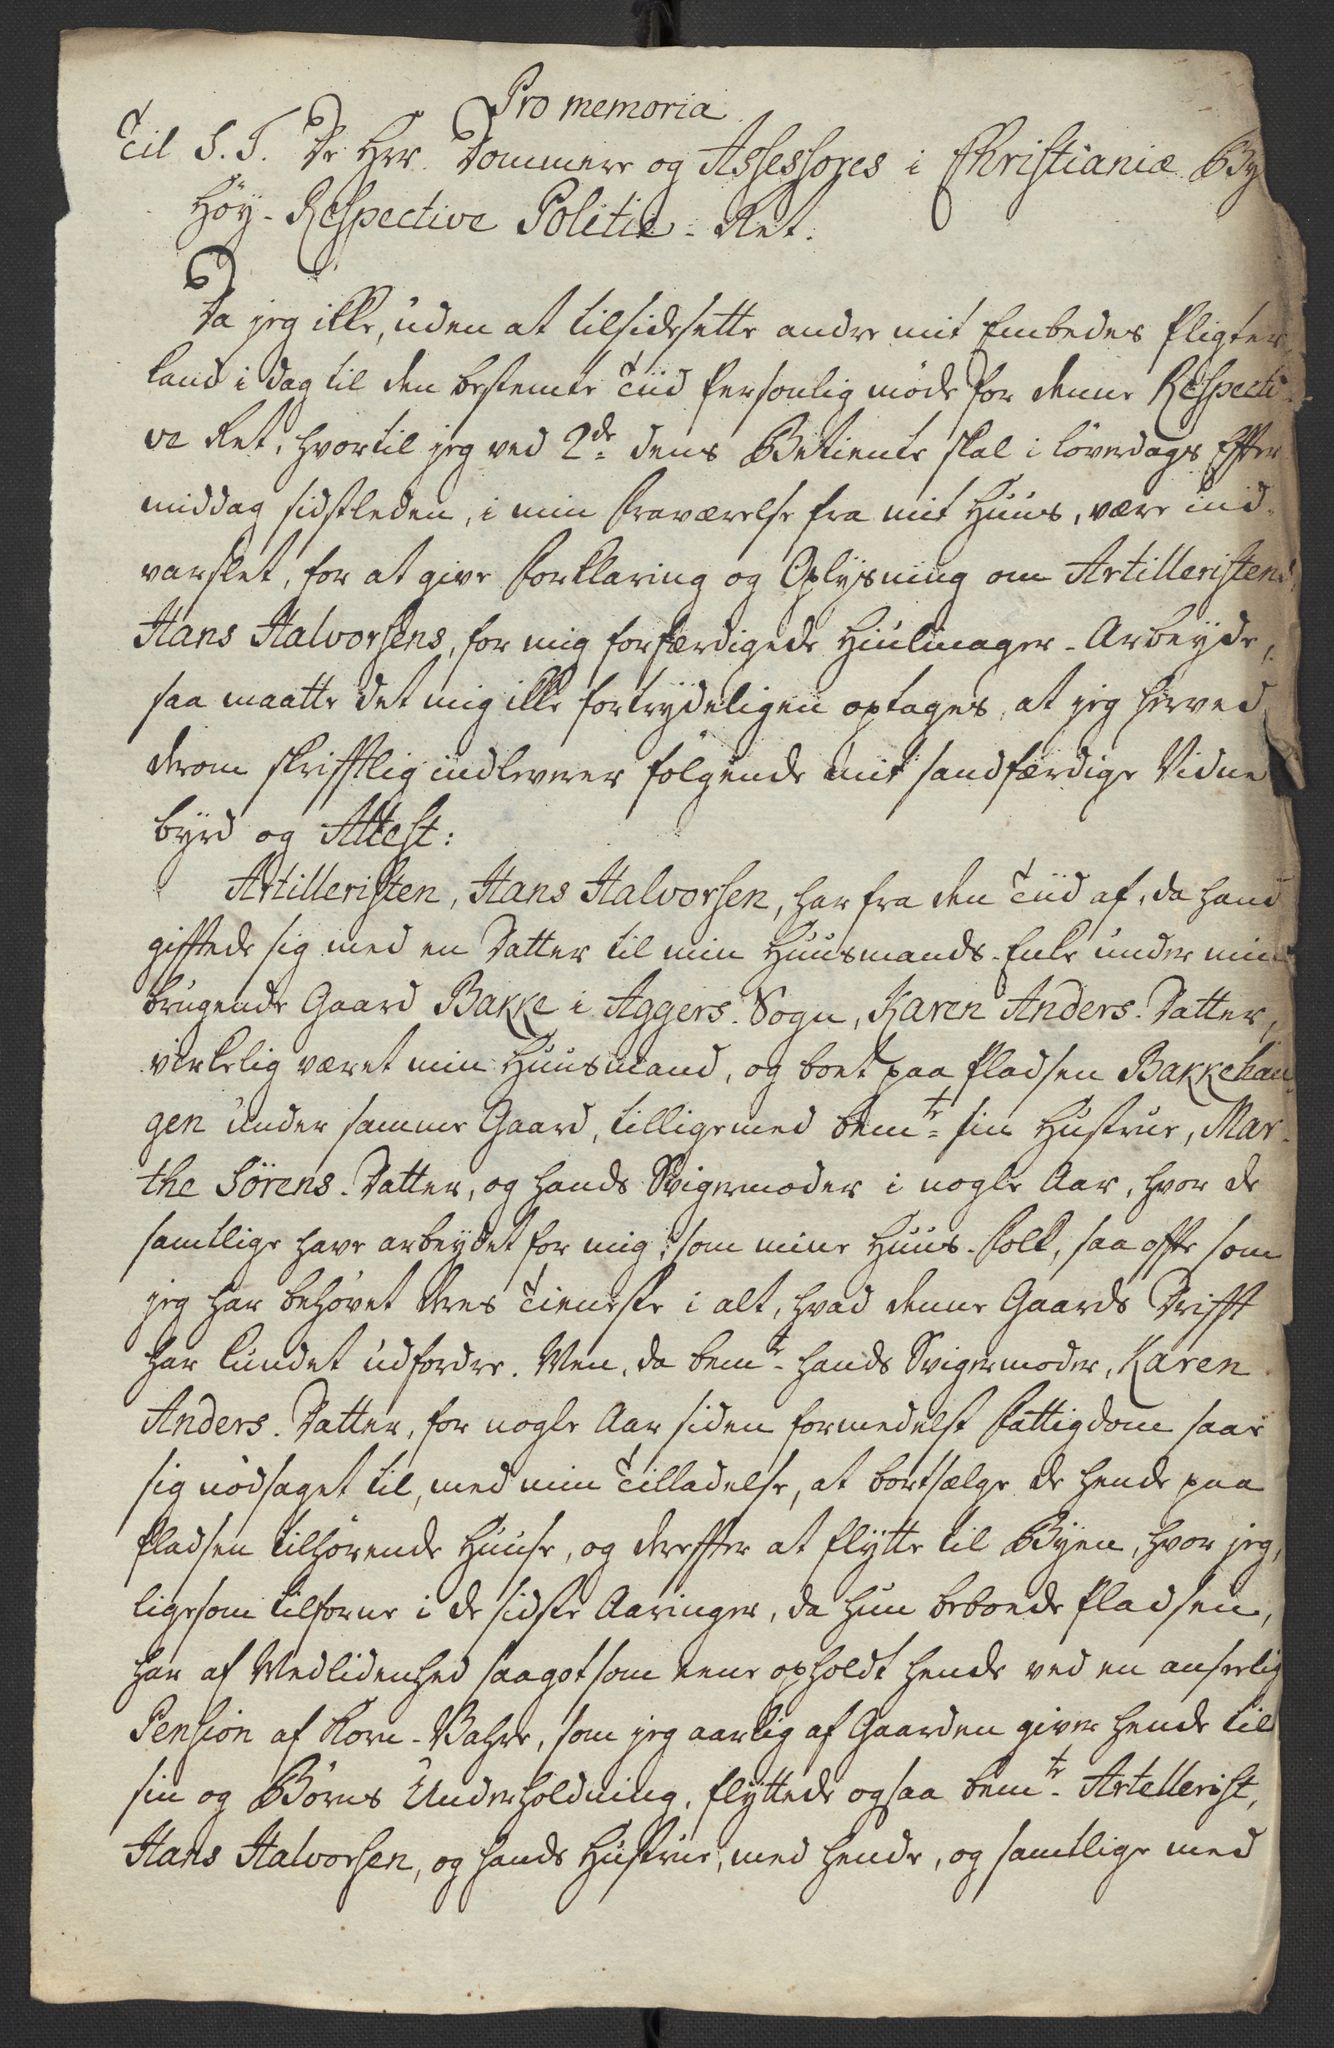 Pro memoria
Til S. T. De Hrr. Dommere og Assessores i Christianiæ By
Høy-Respective Politie-Ret.
Da jeg ikke, uden at tilsidesette andre mit Embedes Pligter
kand i dag til den bestemte Tiid Personlig møde for denne Respecti-
ve Ret, hvortil jeg ved 2de dens Betiente skal i Løverdags Effter
middag sidstleden, i min Fraværelse fra mit Huus, være ind-
varslet, for at give Forklaring og Oplysning om Artilleristens
Hans Halvorsens, for mig forfærdigede Hiulmager-Arbeyde,
saa maatte det mig ikke fortrydeligen optages, at jeg herved
derom skrifftlig indleverer følgende mit sandfærdige Vidne
byrd og Attest:
Artilleristen, Hans Halvorsen, har fra den Tiid af, da hand
gifftede sig med en Datter til min Huusmands-Enke under min
brugende Gaard Bakke i Aggers-Sogn, Karen Anders-Datter,
virkelig været min Huusmand, og boet paa Pladsen Bakkehau
gen under samme Gaard, tilligemed bemte sin Hustrue, Mar-
the Sörens-Datter, og hands Svigermoder i nogle Aar, hvor de
samtlige have arbeydet for mig, som mine Huus-Folk, saa offte som
jeg har behøvet deres Tieneste i alt, hvad denne Gaards Drifft
har kundet udfordre. Men, da bemte hands Svigermoder, Karen
Anders-Datter, for nogle Aar siden formedelst Fattigdom saae
sig nødsaget til, med min Tilladelse, at bortsælge de hende paa
Pladsen tilhørende Huuse, og dereffter at flytte til Byen, hvor jeg,
ligesom tilforne i de sidste Aaringer, da hun beboede Pladsen,
har af Medlidenhed saagot som eene opholdt hende ved en anseelig
Pension af Korn-Vahre, som jeg aarlig af Gaarden giver hende til
sin og Børns Underholdning, flyttede ogsaa bemte Artellerist,
Hans Halvorsen, og hands Hustrue, med hende, og samtlige med